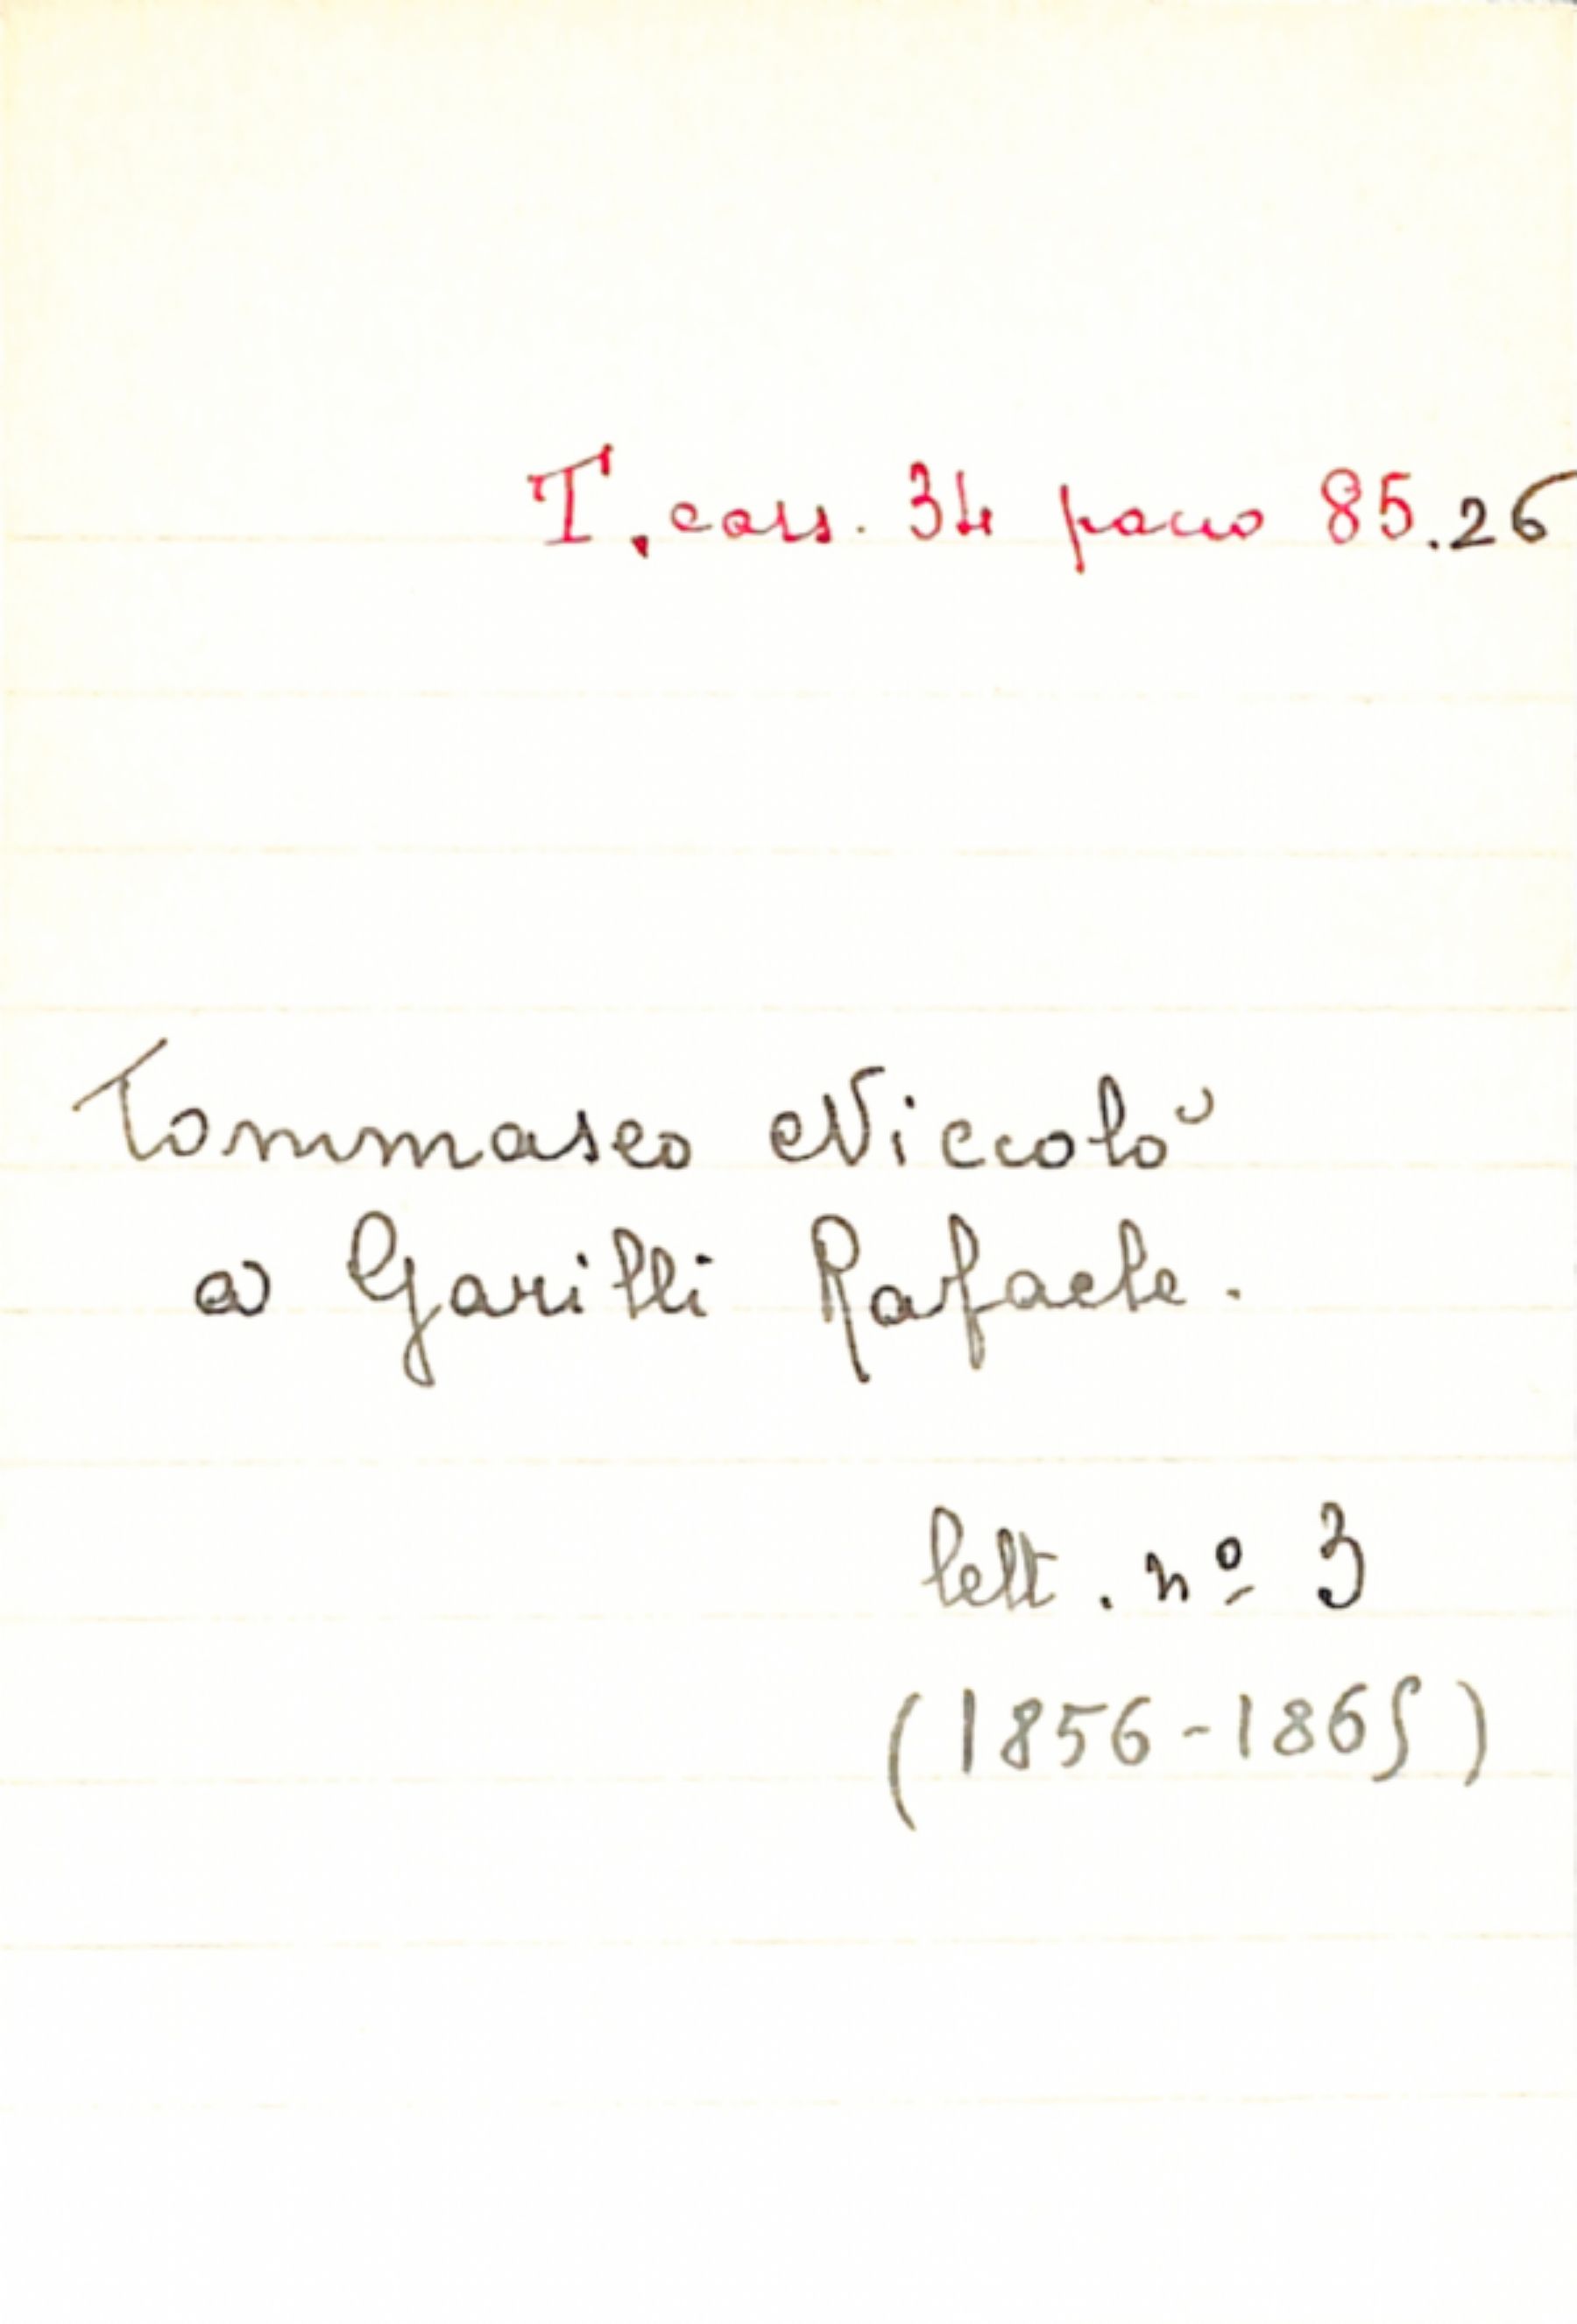 T. cass. 34 pacco 85.26
Tommaseo Niccolò
a Garilli Rafaele.
lett. nº 3
(1856-1865)